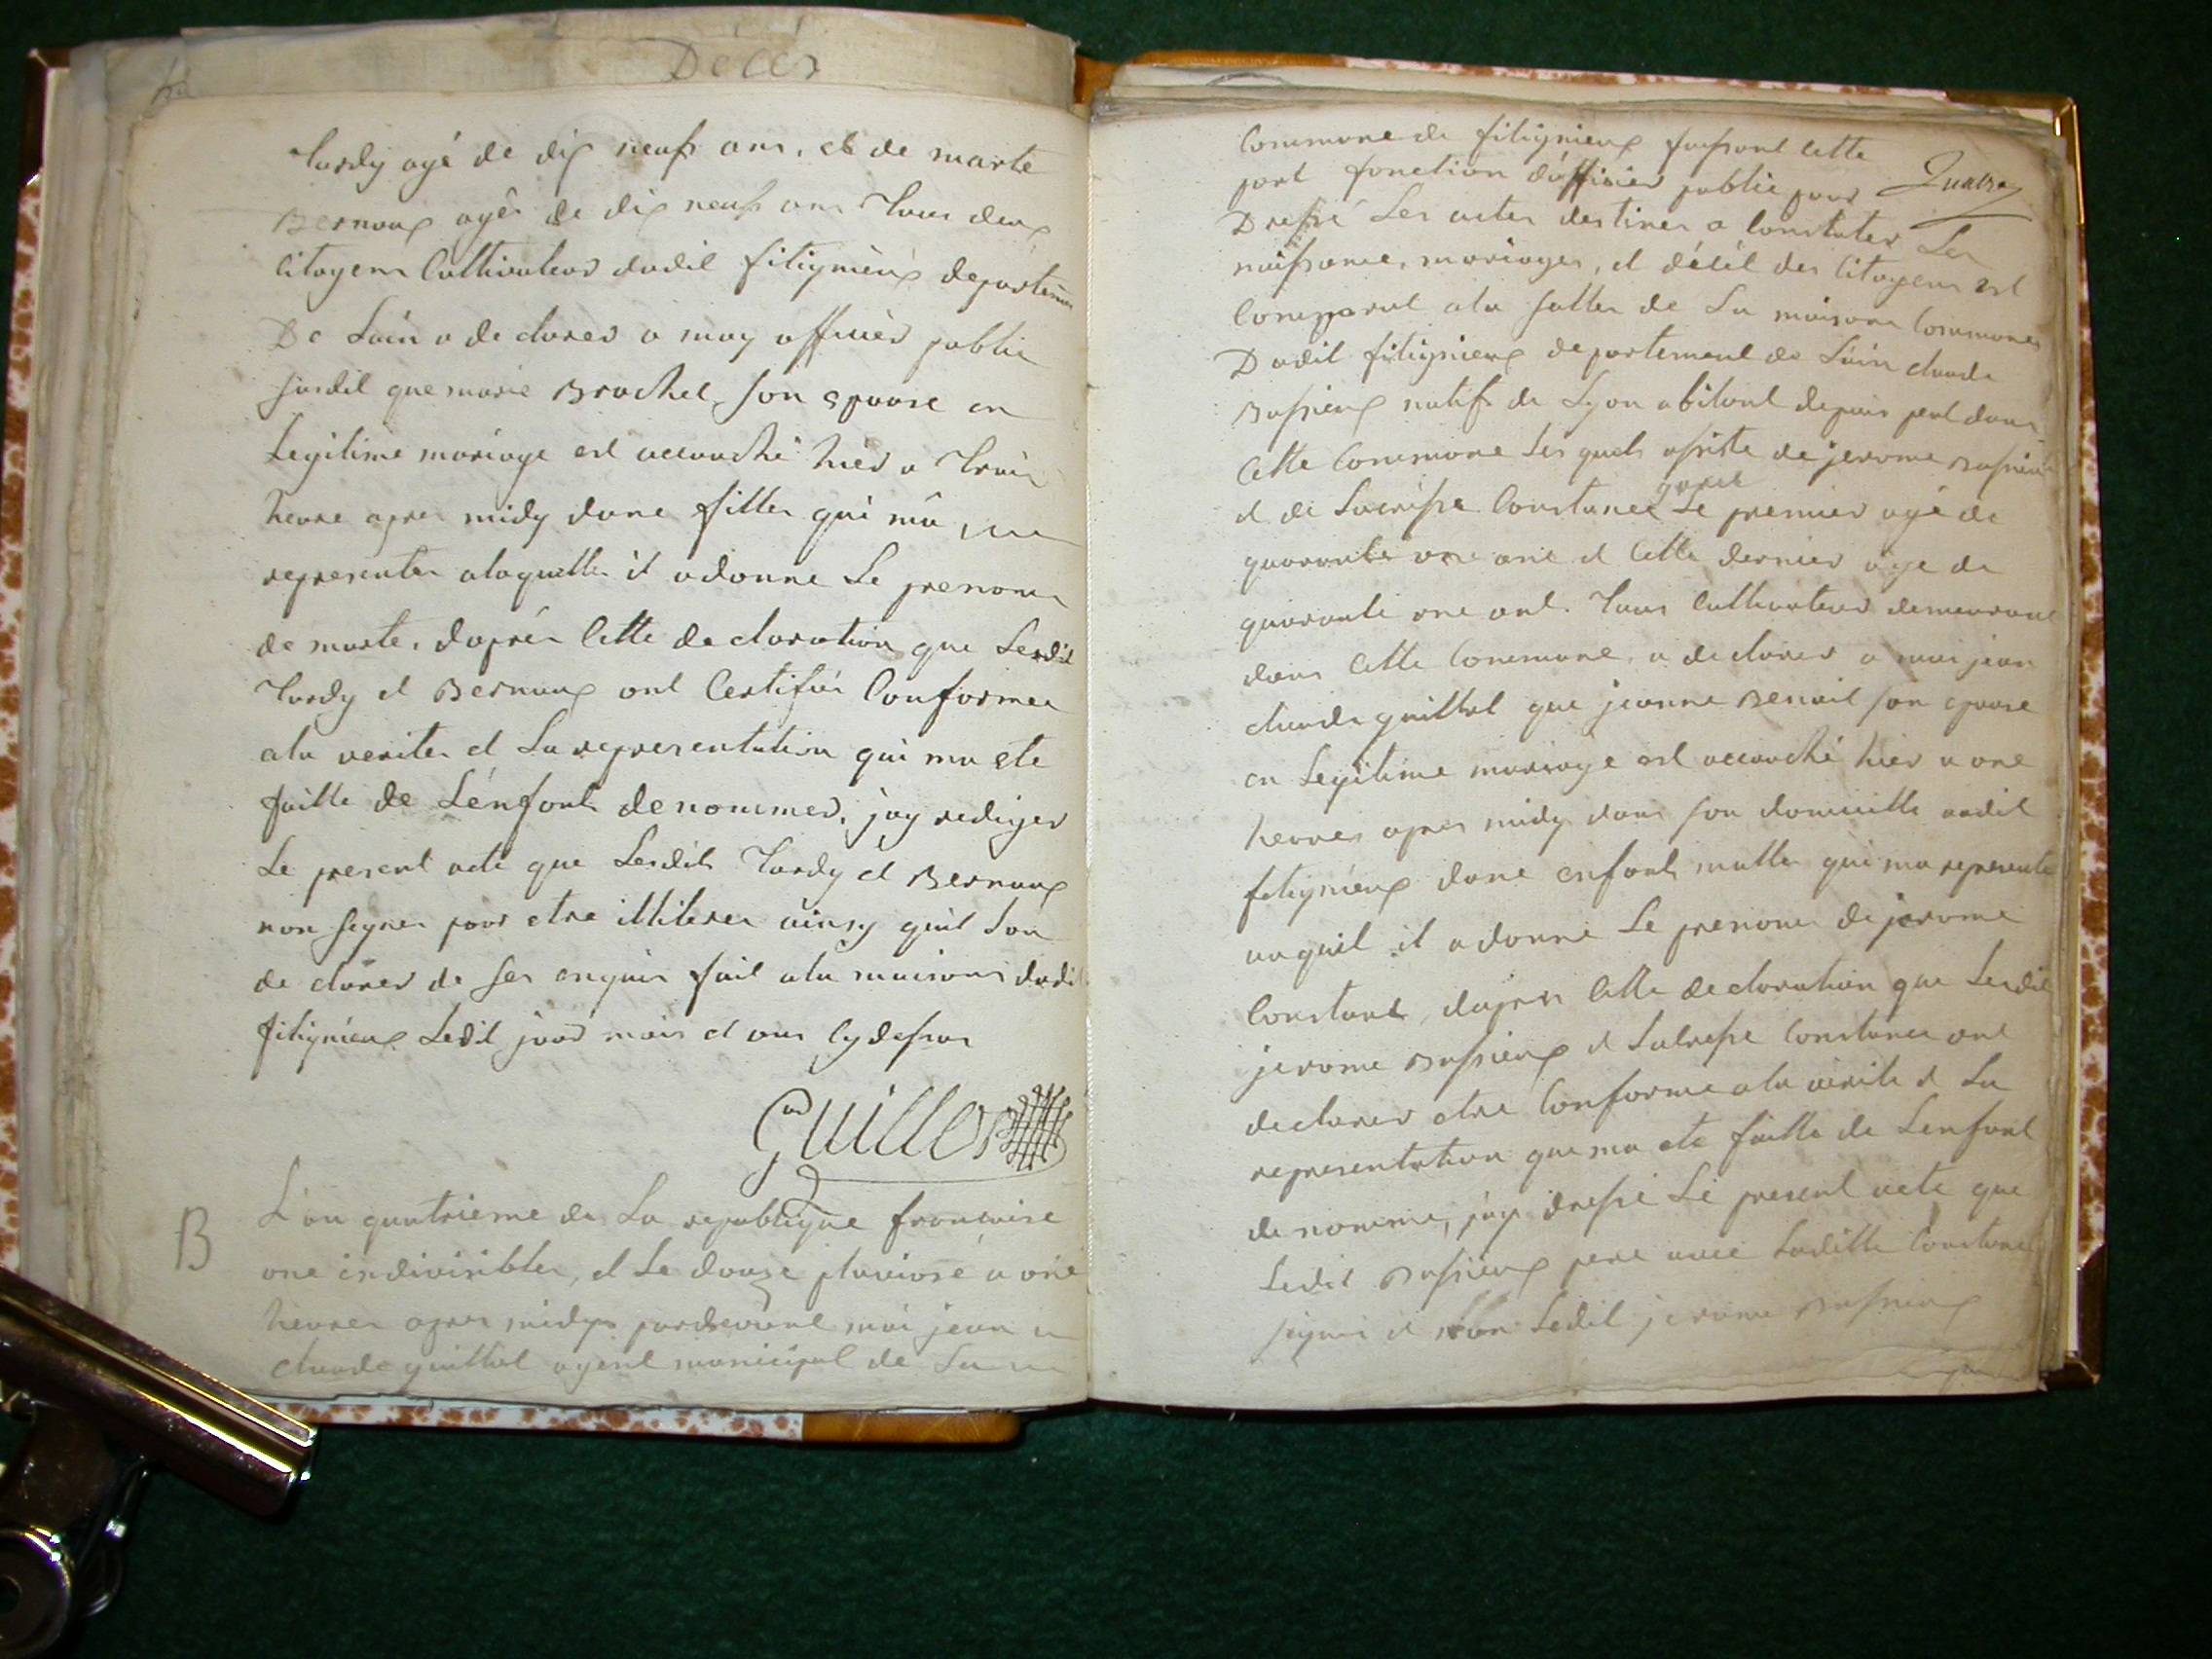 Décés
Tardy agé de dix neufs ans, et de marte
Bernoux agée de dix neufs ans Tous deux
Citoyens Cultivateurs dudit fitignieux departemen
De Lain a declarer a moy officier public
susdit que marie Brachet son epouse en
Legitime mariage est accouché hier a Trois
heure apres midy dune fille qui mà
representer a laquelle il a donne Le prenom
de marte, daprés Cette declaration que Lesdit
Tardy et Bernoux ont Certifiér Conformee
ala veriter et La representation qui ma ete
faitte de Lénfont denommer, jay rediger
Le present acte que Lesdits Tardy et Bernoux
non signer pour etre illiterer ainsy quil Lon
declarer de ses enquis fait ala maisons dudit
fitignieux Ledit jour mois et ans Cydessus
Guillot
B
L'an quatrieme de La republique francaise
one indivisible, et Le douze pluviose a one
heures apres midys pardevant moi jean
claude guillot agent municipal de La
Commune de fitignieux faissont Cette
part fonction d'officier public pour
Dressé Les actes destiner a Constuter Les
naissance, mariages, et décét des Citoyens est
Comparut ala salle de La maisons Commones
Dudit fitignieux departement de Lain claude
Bassieux natifs de Lyon abitant depuis peut dans
Cette Commone Les quels assiste de jerome Bassieux
et de Lucresse Constance Le premier agé de
quarante one ans et Cette dernier age de
quarante one ant. Tous Cultivateur demeurant
dans Cette Commune, a declarer a moi jean
claude guillot que jeanne Benoit son epouse
en Legitime mariage est accouché hier a one
heures apres midy dans son domicille audit
fitignieux done enfont malle qui ma represente
auquil il a donné Le prenom de jerome
Constant, dapres Cette declaration que Lesdit
jerome Bassieux et Lucresse Constance ont
declarer etre Conforme ala verite et La
representation que ma ete faitte de Lenfont
denomme, jay dressé Le present acte que
Ledit Bassieux pere avec Laditte Constance
signer et non Ledit jerome Bassieux